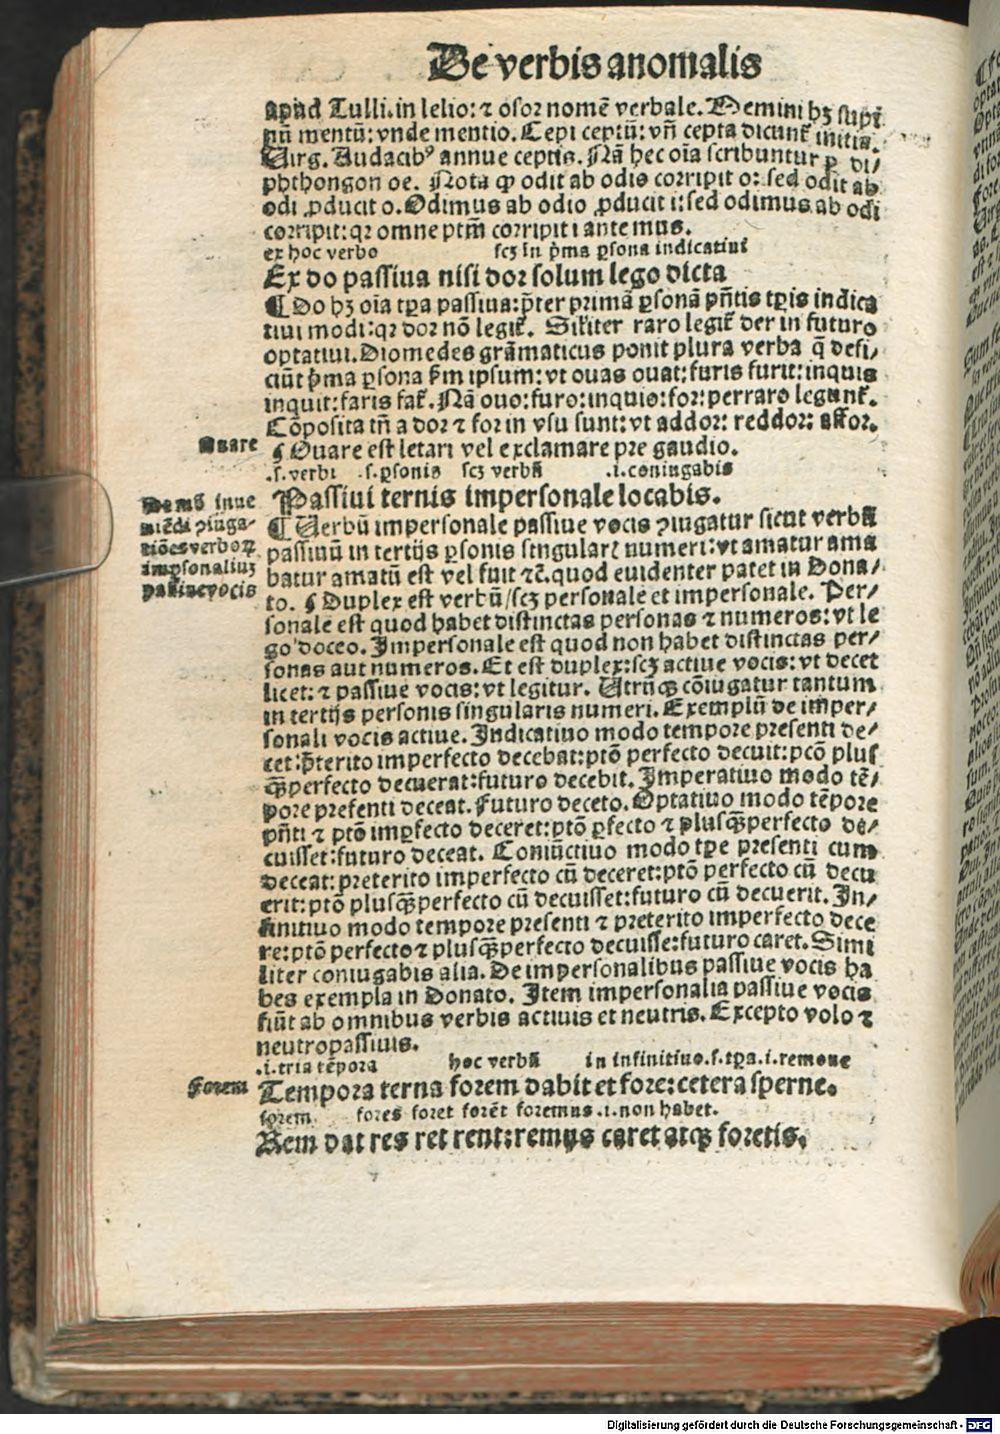 De verbis anomalis
apud Tulli. in lelio: ⁊ osor nomē verbale. Memini hꝫ supi
nū mentū: vnde mentio. Cepi ceptū: vn̄ cepta dicunt᷑ initia.
Virg. Audacibꝰ annue ceptis. Nā hec oīa scribuntur ꝑ di/
phthongon oe. Nota ꝙ odit ab odio corripit o: sed odit ab
odi ꝓducit o. Odimus ab odio ꝓducit i: sed odimus ab odi
corripit: qꝛ omne ptm̄ corripit i ante mus.
ex hoc verbo scꝫ in p̄ma ꝑsona indicatiui
Ex do passiua nisi dor solum lego dicta
¶ Do hꝫ oīa tꝑa passiua: p̄ter primā ꝑsonā pn̄tis tꝑis indica
tiui modi: qꝛ dor nō legit᷑. Sil̄iter raro legit᷑ der in futuro
optatiui. Diomedes grāmaticus ponit plura verba q̄ defi/
ciūt p̄ma ꝑsona ẜm ipsum: vt ouas ouat: furis furit: inquis
inquit: faris fat᷑. Nā ouo: furo: inquio: for: perraro legunt᷑.
Cōposita tn̄ a dor ⁊ for in vsu sunt: vt addor: reddor: affor.
Ouare
¶ Ouare est letari vel exclamare pre gaudio.
.s. verbi .s. ꝑsonis scꝫ verbū .i. coniugabis
Passiui ternis impersonale locabis.
¶ Verbū impersonale passiue vocis ꝯiugatur sicut verbū
passiuū in tertijs ꝑsonis singularꝫ numeri: vt amatur ama
batur amatū est vel fuit ⁊c̄. quod euidenter patet in Dona/
to. ¶ Duplex est verbū/scꝫ personale et impersonale. Per/
sonale est quod habet distinctas personas ⁊ numeros: vt le
go doceo. Impersonale est quod non habet distinctas per/
sonas aut numeros. Et est duplex: scꝫ actiue vocis: vt decet
licet: ⁊ passiue vocis: vt legitur. Vtrūqꝫ cōiugatur tantum
in tertijs personis singularis numeri. Exemplū de imper/
sonali vocis actiue. Indicatiuo modo tempore presenti de/
cet: p̄terito imperfecto decebat: ptō perfecto decuit: ptō plus
ꝙ̄perfecto decuerat: futuro decebit. Imperatiuo modo tē/
pore presenti deceat. Futuro deceto. Optatiuo modo tēpore
pn̄ti ⁊ ptō imꝑfecto deceret: ptō ꝑfecto ⁊ plusꝙ̄perfecto de/
cuisset: futuro deceat. Coniūctiuo modo tꝑe presenti cum
deceat: preterito imperfecto cū deceret: ptō perfecto cū decu
erit: ptō plusꝙ̄perfecto cū decuisset: futuro cū decuerit. In/
finitiuo modo tempore presenti ⁊ preterito imperfecto dece
re: ptō perfecto ⁊ plusꝙ̄perfecto decuisse: futuro caret. Simi
liter coniugabis alia. De impersonalibus passiue vocis ha
bes exempla in Donato. Item impersonalia passiue vocis
fiūt ab omnibus verbis actiuis et neutris. Excepto volo ⁊
neutropassiuis.
De mō inue
niēdi ꝯiuga/
tiōes verboꝝ
imꝑsonaliuꝫ
passiue vocis
.i. tria tēpora hoc verbū in infinitiuo .s. tꝑa .i. remoue
Forem
Tempora terna forem dabit et fore: cetera sperne.
forem fores foret forēt foremus .i. non habet.
Rem dat res ret rent: remus caret atqꝫ foretis.
Digitalisierung gefördert durch die Deutsche Forschungsgemeinschaft - DFG